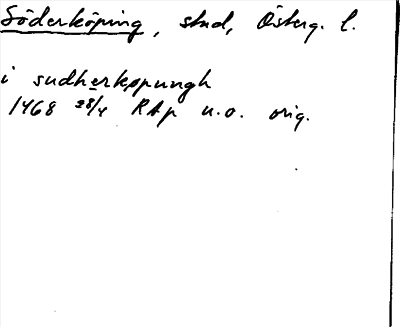 Söderköping, stad, Österg. l.
i sudherkøpungh
1468 28/4 RAp u.o. orig.